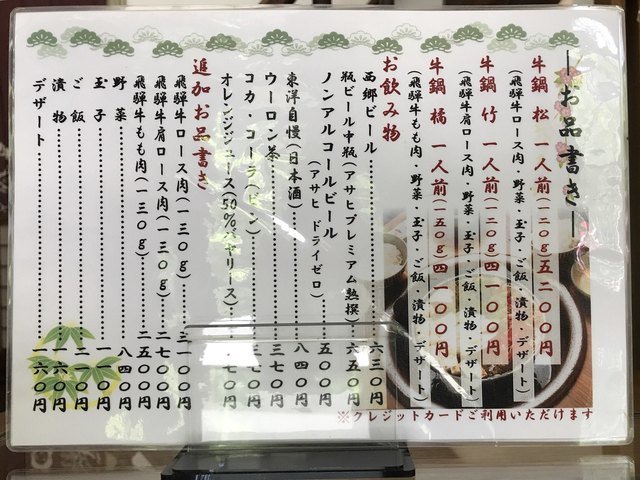 ―お品書き―
牛鍋 松 一人前(一二〇g)五二〇〇円
(飛騨牛ロース肉・野菜・玉子・ご飯・漬物・デザート)
牛鍋 竹 一人前(一二〇g)四一〇〇円
(飛騨牛肩ロース肉・野菜・玉子・ご飯・漬物・デザート)
牛鍋 橘 一人前(一五〇g)四一〇〇円
(飛騨牛もも肉・野菜・玉子・ご飯・漬物・デザート)
お飲み物
西郷ビール……六三〇円
瓶ビール中瓶(アサヒプレミアム熟撰)…六五〇円
ノンアルコールビール
(アサヒ ドライゼロ)……五〇〇円
東洋自慢(日本酒)……八四〇円
ウーロン茶……三七〇円
コカ・コーラ(ビン)……三七〇円
オレンジジュース(50%バャリース)…
追加お品書き
飛騨牛ロース肉(一三〇g)……三一〇〇円
飛騨牛肩ロース肉(一三〇g)……二七〇〇円
飛騨牛もも肉(一三〇g)……二五〇〇円
野菜……八四〇円
玉子……一一〇円
ご飯……二一〇円
漬物……一六〇円
デザート……一六〇円
※クレジットカードご利用いただけます